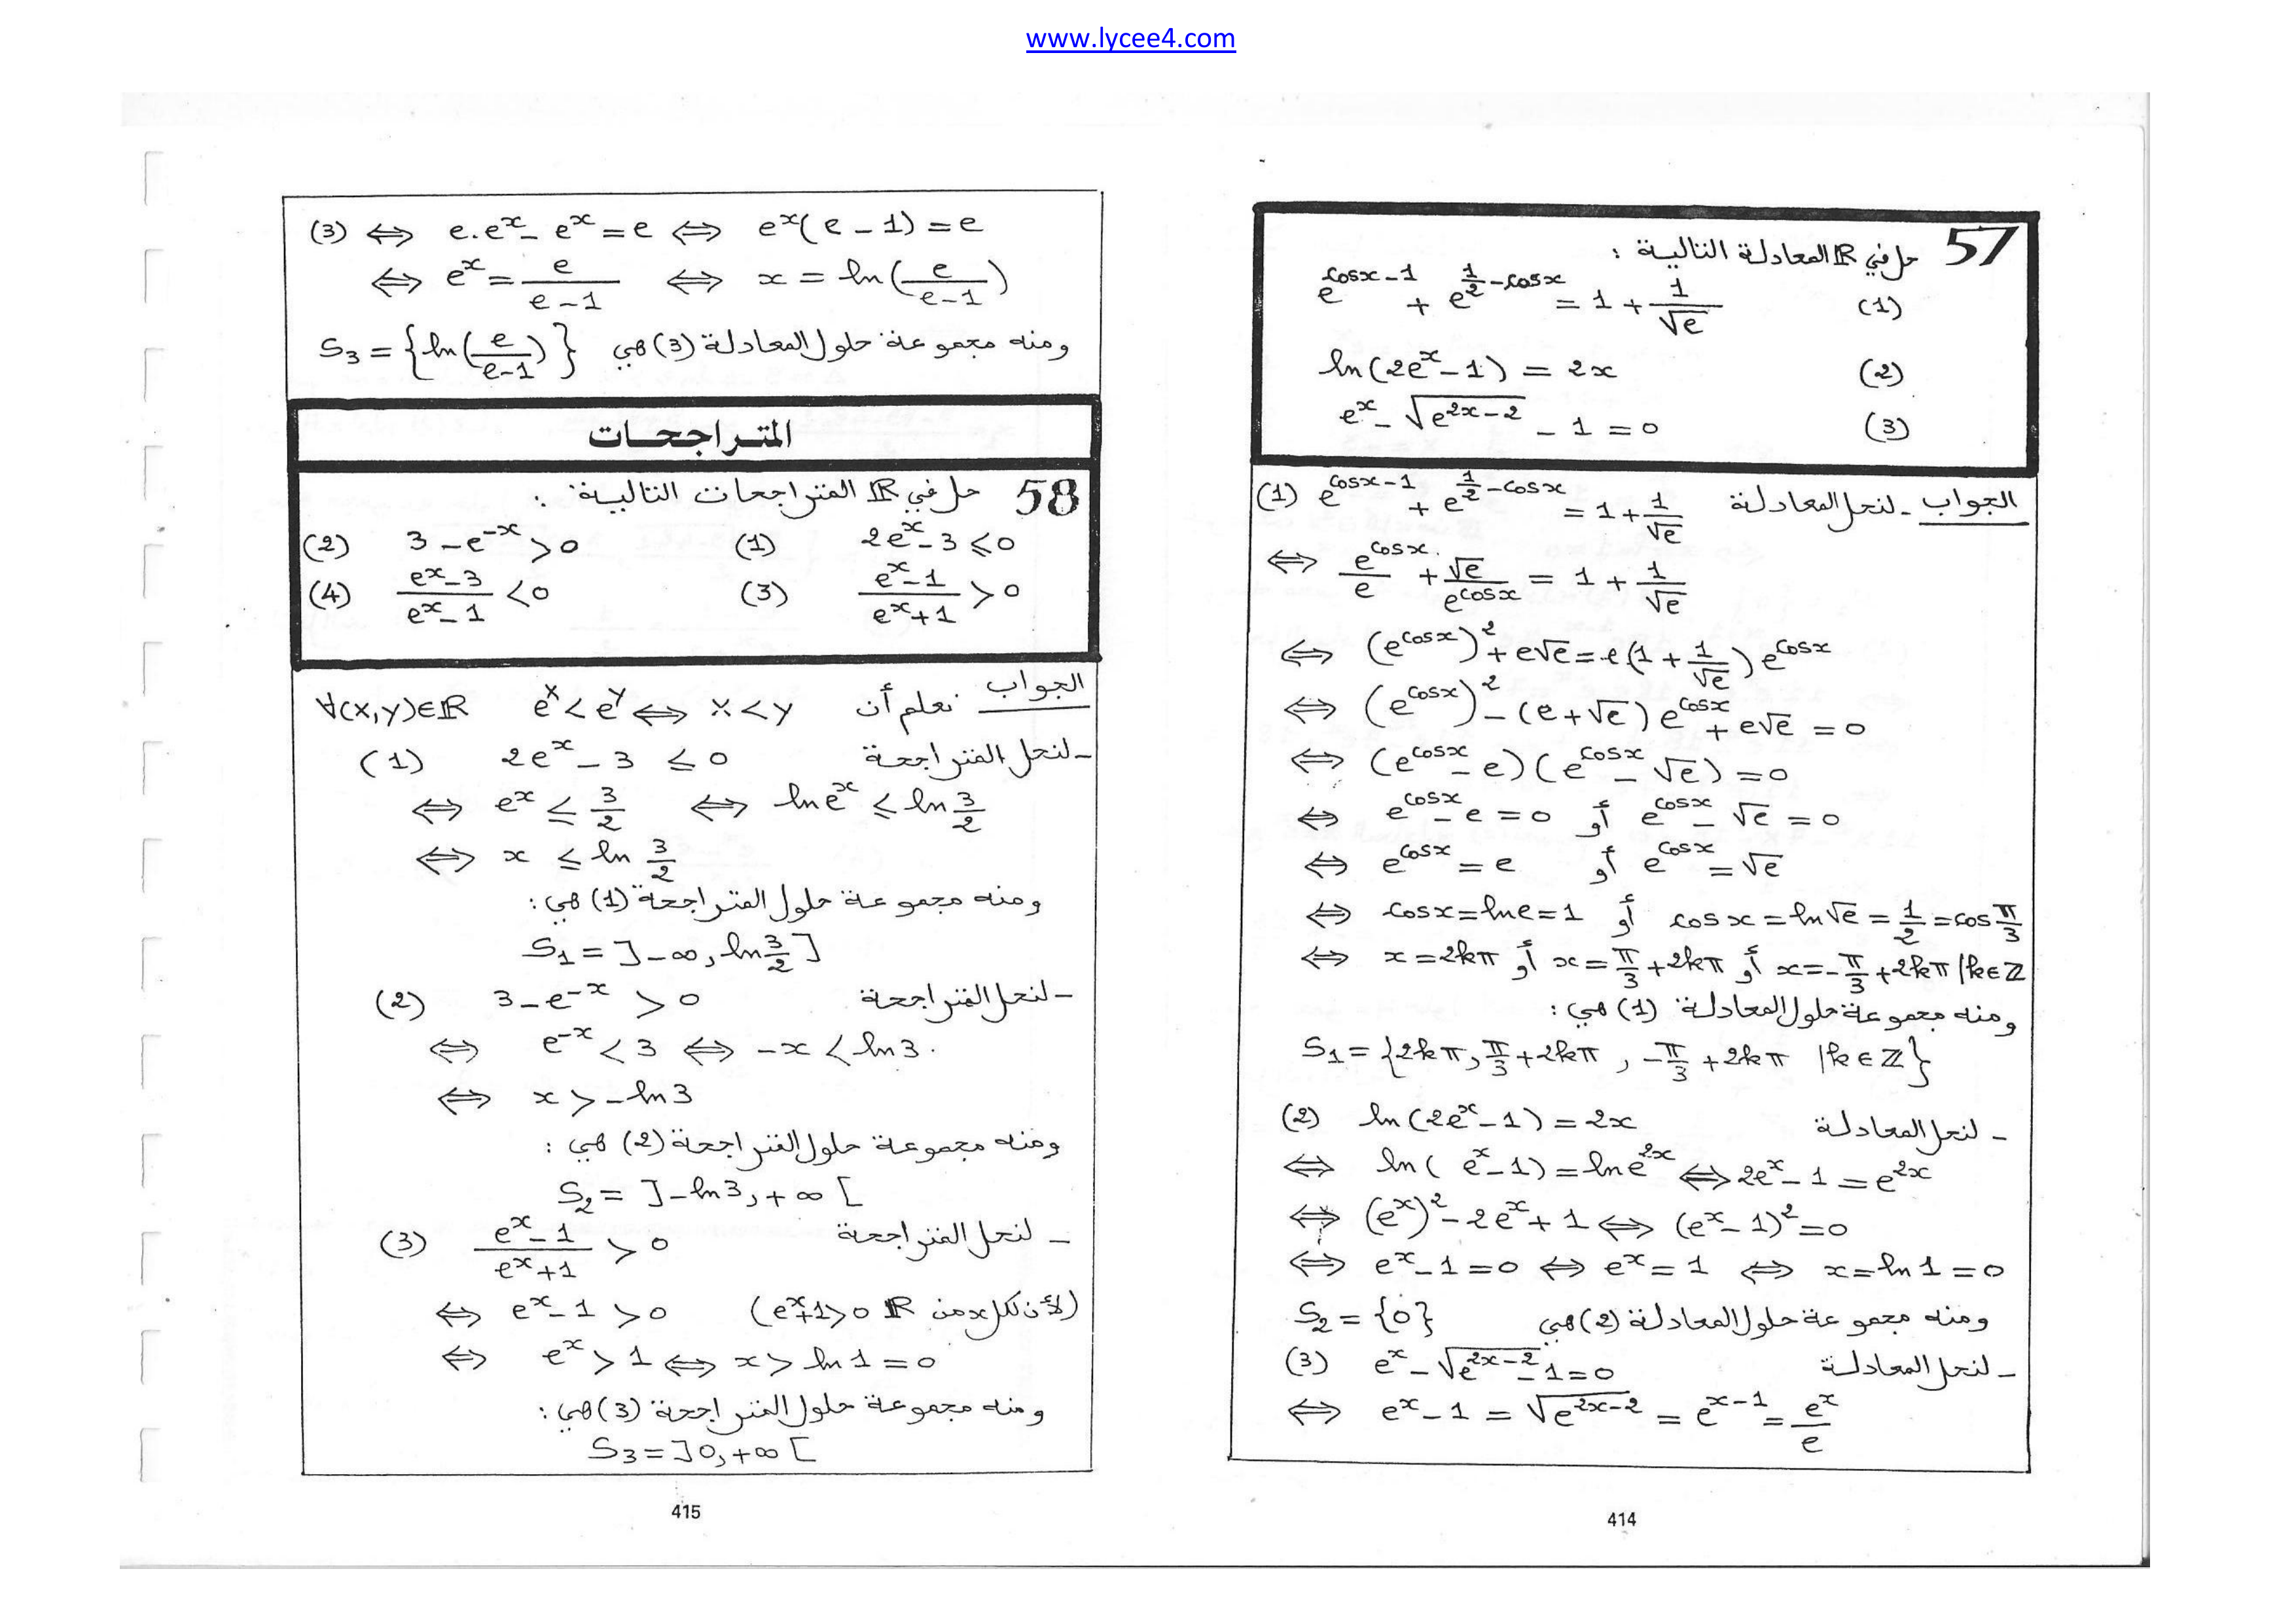 www.lycee4.com
57 حل في ℝ المعادلة التالية :
e^{cosx-1} + e^{1/2-cosx} = 1 + 1/√e (1)
ln(2e^x - 1) = 2x (2)
e^x - √(e^{2x-2}) - 1 = 0 (3)
الجواب - لنحل المعادلة (1) e^{cosx-1} + e^{1/2-cosx} = 1 + 1/√e
⇔ e^{cosx}/e + √e/e^{cosx} = 1 + 1/√e
⇔ (e^{cosx})² + e√e = e(1 + 1/√e) e^{cosx}
⇔ (e^{cosx})² - (e+√e) e^{cosx} + e√e = 0
⇔ (e^{cosx} - e)(e^{cosx} - √e) = 0
⇔ e^{cosx} - e = 0 أو e^{cosx} - √e = 0
⇔ e^{cosx} = e أو e^{cosx} = √e
⇔ cosx = lne = 1 أو cosx = ln√e = 1/2 = cos π/3
⇔ x = 2kπ أو x = π/3 + 2kπ أو x = -π/3 + 2kπ / k∈ℤ
ومنه مجموعة حلول المعادلة (1) هي :
S₁ = {2kπ, π/3 + 2kπ, -π/3 + 2kπ / k∈ℤ}
- لنحل المعادلة (2) ln(2e^x - 1) = 2x
⇔ ln( e^x - 1) = lne^{2x} ⇔ 2e^x - 1 = e^{2x}
⇔ (e^x)² - 2e^x + 1 ⇔ (e^x - 1)² = 0
⇔ e^x - 1 = 0 ⇔ e^x = 1 ⇔ x = ln1 = 0
ومنه مجموعة حلول المعادلة (2) هي S₂ = {0}
- لنحل المعادلة (3) e^x - √(e^{2x-2}) - 1 = 0
⇔ e^x - 1 = √(e^{2x-2}) = e^{x-1} = e^x/e
414
(3) ⇔ e.e^x - e^x = e ⇔ e^x(e - 1) = e
⇔ e^x = e/(e-1) ⇔ x = ln(e/(e-1))
ومنه مجموعة حلول المعادلة (3) هي S₃ = {ln(e/(e-1))}
المتراجحات
58 حل في ℝ المتراجحات التالية :
2e^x - 3 ≤ 0 (1) 3 - e^{-x} > 0 (2)
(e^x - 1)/(e^x + 1) > 0 (3) (e^x - 3)/(e^x - 1) < 0 (4)
الجواب
نعلم أن ∀(X,Y)∈ℝ e^X < e^Y ⇔ X < Y
- لنحل المتراجحة (1) 2e^x - 3 ≤ 0
⇔ e^x ≤ 3/2 ⇔ lne^x ≤ ln 3/2
⇔ x ≤ ln 3/2
ومنه مجموعة حلول المتراجحة (1) هي :
S₁ = ]-∞, ln 3/2]
- لنحل المتراجحة (2) 3 - e^{-x} > 0
⇔ e^{-x} < 3 ⇔ -x < ln3.
⇔ x > -ln3
ومنه مجموعة حلول المتراجحة (2) هي :
S₂ = ]-ln3, +∞[
- لنحل المتراجحة (3) (e^x - 1)/(e^x + 1) > 0
⇔ e^x - 1 > 0 (لأن لكل x من ℝ e^x+1>0)
⇔ e^x > 1 ⇔ x > ln1 = 0
ومنه مجموعة حلول المتراجحة (3) هي :
S₃ = ]0, +∞[
415